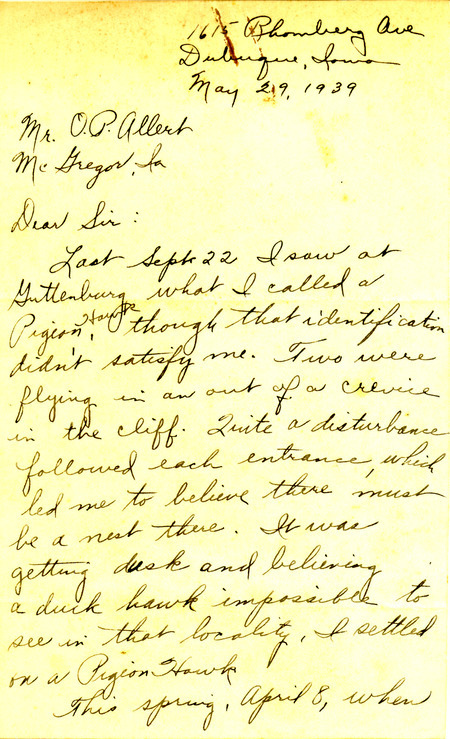 1615 Rhomberg Ave
Dubuque, Iowa
May 29, 1939
Mr. O.P. Allert
McGregor, Ia
Dear Sir:
Last Sept 22 I saw at
Guttenburg what I called a
Pigeon Hawk, though that identification
didn't satisfy me. Two were
flying in an out of a crevice
in the cliff. Quite a disturbance
followed each entrance, which
led me to believe there must
be a nest there. It was
getting dusk and believing
a duck hawk impossible to
see in that locality, I settled
on a Pigeon Hawk
This spring, April 8, when